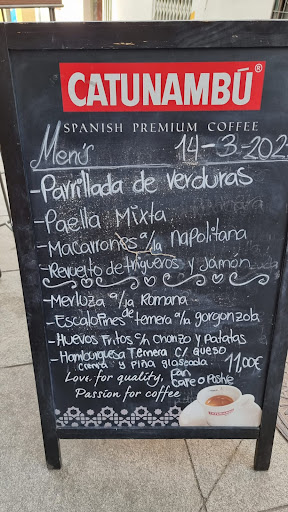 CATUNAMBÚ®
SPANISH PREMIUM COFFEE
Menús 14-3-202
-Parrillada de verduras
-Paella Mixta
-Macarrones a/la napolitana
-Revuelto de trigueros y jamón
-Merluza a/la Romana
-Escalopines de ternera a/la gorgonzola
-Huevos fritos c/n chorizo y patatas
-Hamburguesa Ternera c/ queso
crema y Piña glaseada 11,00€
Love for quality, Pan
Passion for coffee Cafe o Postre